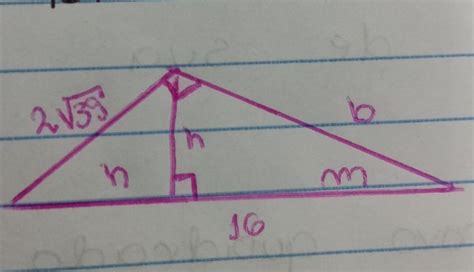 2√39
b
h
n
m
16